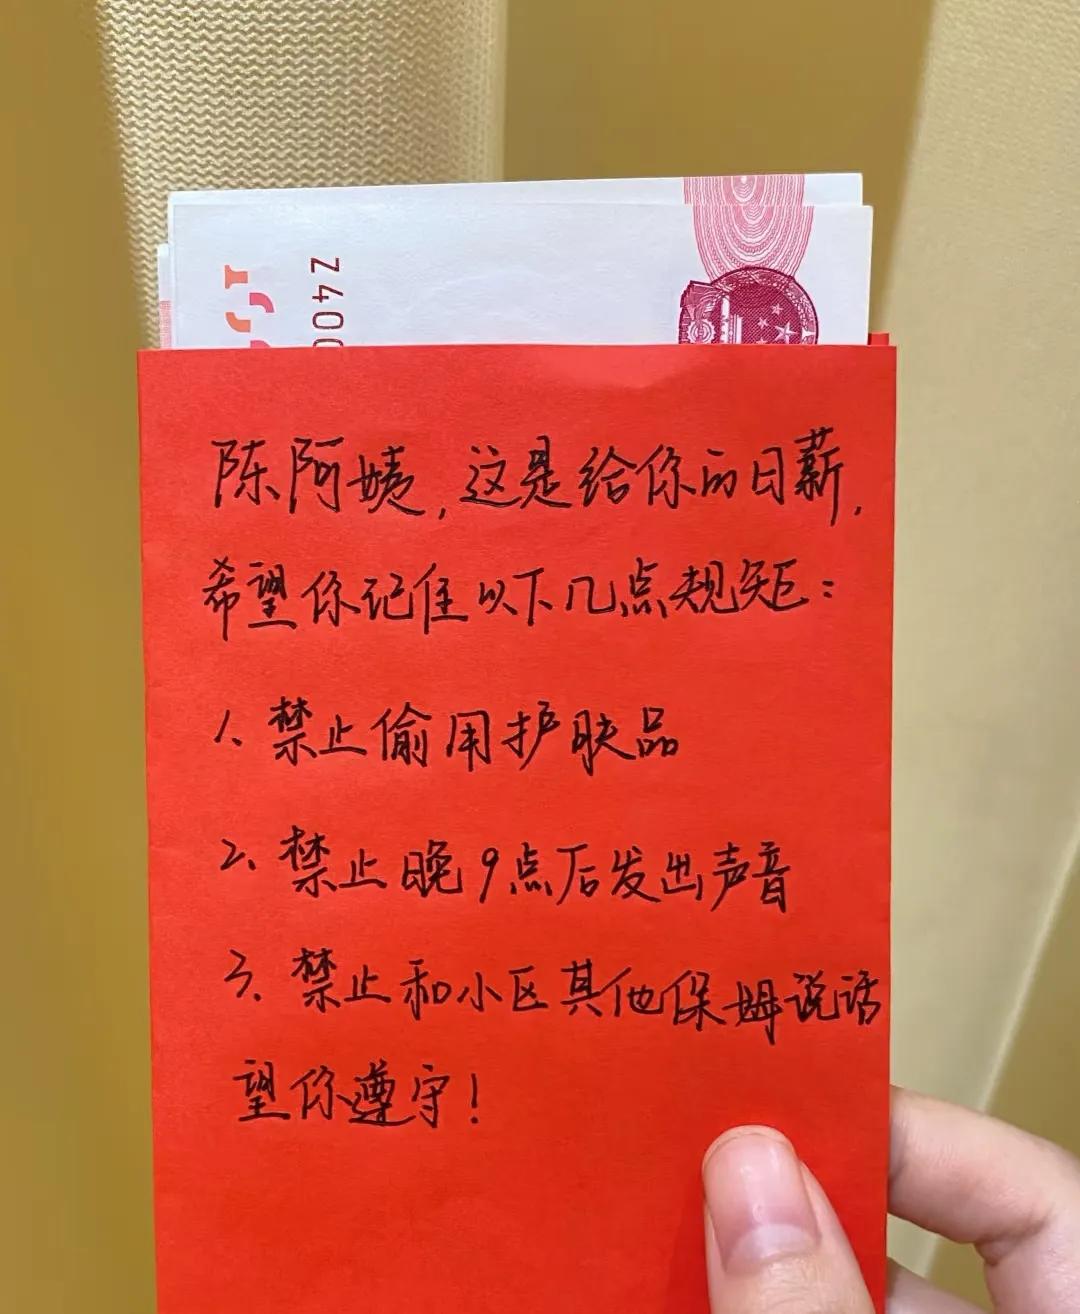 Z400
陈阿姨,这是给你的日薪,
希望你记住以下几点规矩:
1、禁止偷用护肤品
2、禁止晚9点后发出声音
3、禁止和小区其他保姆说话
望你遵守!